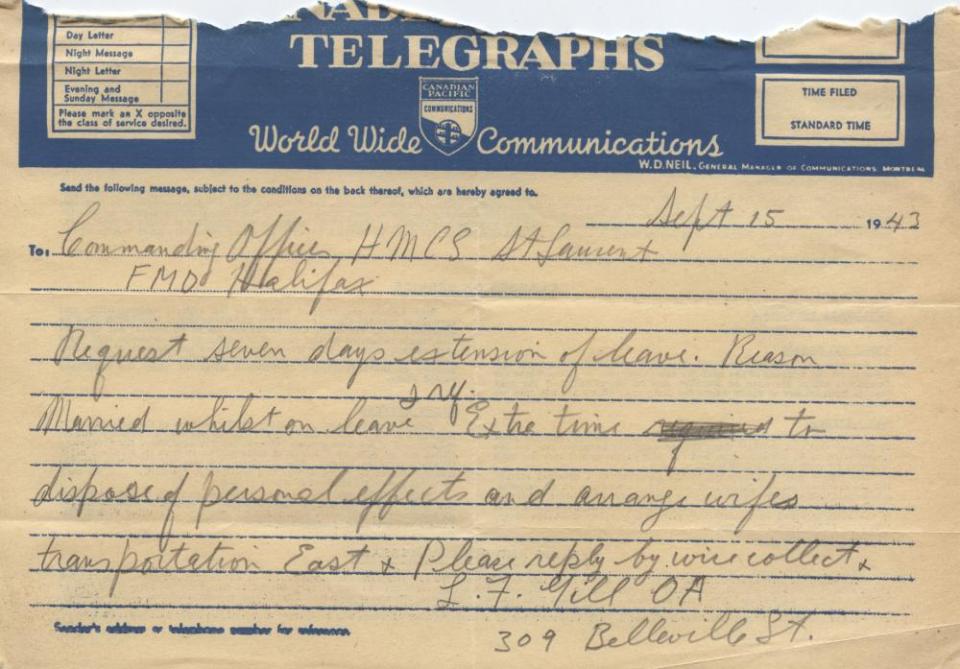 Day Letter
Night Message
Night Letter
Evening and
Sunday Message
Please mark an X opposite
the class of service desired.
TELEGRAPHS
CANADIAN
PACIFIC
COMMUNICATIONS
World Wide Communications
TIME FILED
STANDARD TIME
W.D. NEIL, GENERAL MANAGER OF COMMUNICATIONS, MONTREAL
Send the following message, subject to the conditions on the back thereof, which are hereby agreed to.
Sept 15 1943
To: Commanding Officer HMCS St Laurent
FMO Halifax
Request seven days extension of leave. Reason
Married whilst on leave Extra time required to
dispose of personal effects and arrange wifes
transportation East x Please reply by wire collect x
L. F. Gill OA
Sender's address or telephone number for reference
309 Belleville St.